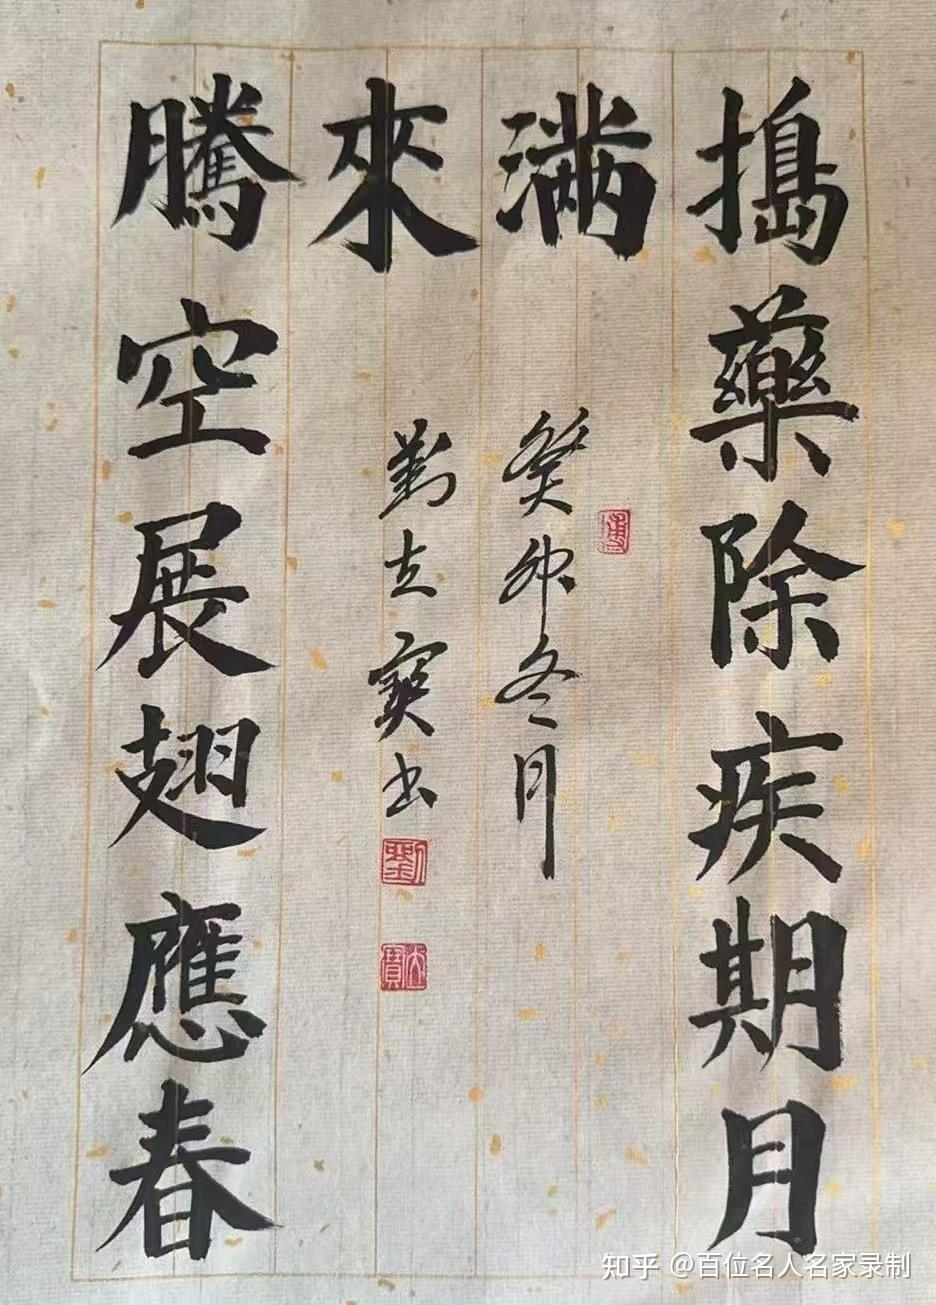 搗藥除疾期月
滿
來
騰空展翅應春
癸卯冬月
劉立寶書
劉
立寶
知乎 @百位名人名家录制